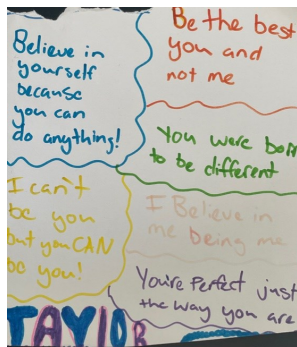 Believe in
yourself
because
you can
do anything!
Be the best
you and
not me
You were born
to be different
I can't
be you
but you CAN
be you!
I Believe in
me being me
You're Perfect just
the way you are
TAYLOR